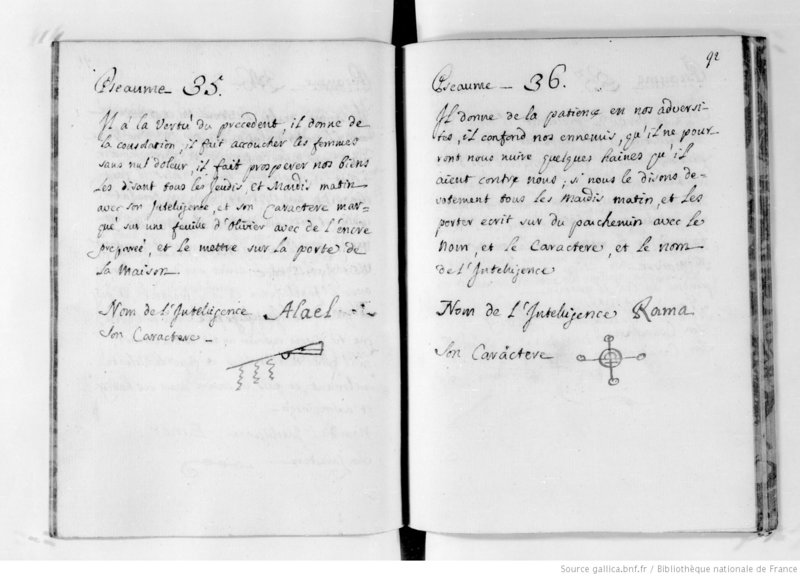 Pseaume 35.
Il a la Vertu du precedent, il donne de
la consolation, il fait accoucher les femmes
sans nul doleur, il fait prosperer nos biens
Les disant tous les Jeudis et Mardis matin
avec son Inteligence, et son Caractere mar-
qué sur une feuille d'Olivier avec de l'encre
preparée, et le mettre sur la porte de
la Maison.
Nom de l'Inteligence Alael
Son Caractere
92
Pseaume 36.
Il donne de la patience en nos adversi-
tés, il confond nos ennemis, qu'il ne pour
ront nous nuire quelques haines qu'il
aient contre nous, si nous le disons de-
votement tous les Mardis matin, et les
porter ecrit sur du parchemin avec le
Nom, et le Caractere, et le nom
de l'Inteligence
Nom de l'Inteligence Rama
Son Caractere
Source gallica.bnf.fr / Bibliothèque nationale de France